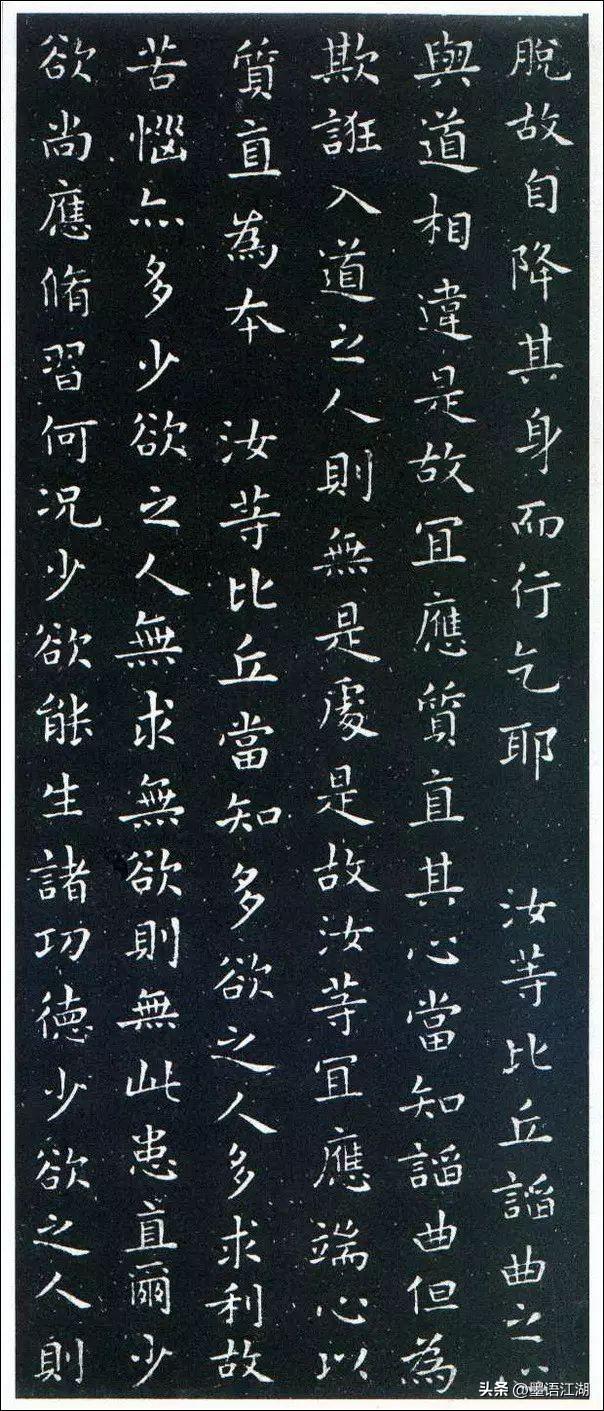 脫故自降其身而行乞耶　汝等比丘諂曲之心
與道相違是故宜應質直其心當知諂曲但為
欺誑入道之人則無是處是故汝等宜應端心以
質直為本　汝等比丘當知多欲之人多求利故
苦惱亦多少欲之人無求無欲則無此患直爾少
欲尚應脩習何況少欲能生諸功德少欲之人則
头条 @墨语江湖